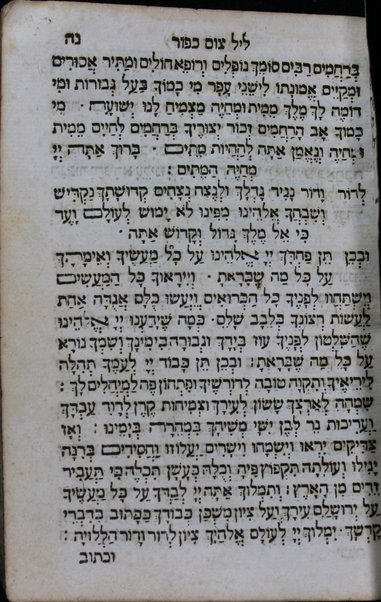 ליל צום כפור נה
בְּרַחֲמִים רַבִּים סוֹמֵךְ נוֹפְלִים וְרוֹפֵא חוֹלִים וּמַתִּיר אֲסוּרִים
וּמְקַיֵּים אֱמוּנָתוֹ לִישֵׁנֵי עָפָר מִי כָמוֹךָ בַּעַל גְּבוּרוֹת וּמִי
דוֹמֶה לָךְ מֶלֶךְ מֵמִית וּמְחַיֶּה מַצְמִיחַ לָנוּ יְשׁוּעָה : מִי
כָמוֹךָ אַב הָרַחֲמִים זְכוֹר יְצוּרֶיךָ בְּרַחֲמִים לְחַיִּים מֵמִית
וּמְחַיֶּה וְנֶאֱמָן אַתָּה לְהַחֲיוֹת מֵתִים : בָּרוּךְ אַתָּה יְיָ
מְחַיֵּה הַמֵּתִים :
לְדוֹר וָדוֹר נַגִּיד גָּדְלֶךָ וּלְנֶצַח נְצָחִים קְדוּשָּׁתְךָ נַקְדִּישׁ
וְשִׁבְחֲךָ אֱלֹהֵינוּ מִפִּינוּ לֹא יָמוּשׁ לְעוֹלָם וָעֶד
כִּי אֵל מֶלֶךְ גָּדוֹל וְקָדוֹשׁ אָתָּה :
וּבְכֵן תֵּן פַּחְדְּךָ יְיָ אֱלֹהֵינוּ עַל כָּל מַעֲשֶׂיךָ וְאֵימָתְךָ
עַל כָּל מַה שֶּׁבָּרָאתָ : וְיִירָאוּךָ כָּל הַמַּעֲשִׂים
וְיִשְׁתַּחֲווּ לְפָנֶיךָ כָּל הַבְּרוּאִים וְיֵעָשׂוּ כֻלָּם אֲגֻדָּה אַחַת
לַעֲשׂוֹת רְצוֹנְךָ בְּלֵבָב שָׁלֵם : כְּמָה שֶׁיָּדַעְנוּ יְיָ אֱלֹהֵינוּ
שֶׁהַשִּׁלְטוֹן לְפָנֶיךָ עוֹז בְּיָדְךָ וּגְבוּרָה בִּימִינֶךָ וְשִׁמְךָ נוֹרָא
עַל כָּל מַה שֶּׁבָּרָאתָ : וּבְכֵן תֵּן כָּבוֹד יְיָ לְעַמֶּךָ תְּהִלָּה
לִירֵיאֶיךָ וְתִקְוָה טוֹבָה לְדוֹרְשֶׁיךָ וּפִתְחוֹן פֶּה לַמְיַחֲלִים לָךְ :
שִׂמְחָה לְאַרְצֶךָ שָׂשׂוֹן לְעִירֶךָ וּצְמִיחַת קֶרֶן לְדָוִד עַבְדֶּךָ
וַעֲרִיכַת נֵר לְבֶן יִשַׁי מְשִׁיחֶךָ בִּמְהֵרָה בְּיָמֵינוּ : וְאָז
צַדִּיקִים יִרְאוּ וְיִשְׂמָחוּ וִישָׁרִים יַעֲלוֹזוּ וַחֲסִידִים בְּרִנָּה
יָגִילוּ וְעוֹלָתָה תִּקְפּוֹץ פִּיהָ וְכֻלָּהּ כְּעָשָׁן תִּכְלֶה כִּי תַעֲבִיר
זָדִים מִן הָאָרֶץ : וְתִמְלוֹךְ אַתָּה יְיָ לְבַדְּךָ עַל כָּל מַעֲשֶׂיךָ
עַל יְרוּשָׁלַיִם עִירֶךָ וְעַל צִיּוֹן מִשְׁכַּן כְּבוֹדֶךָ כַּכָּתוּב בְּדִבְרֵי
קָדְשֶׁךָ : יִמְלוֹךְ יְיָ לְעוֹלָם אֱלֹהַיִךְ צִיּוֹן לְדוֹר וָדוֹר הַלְלוּיָהּ :
וככתוב